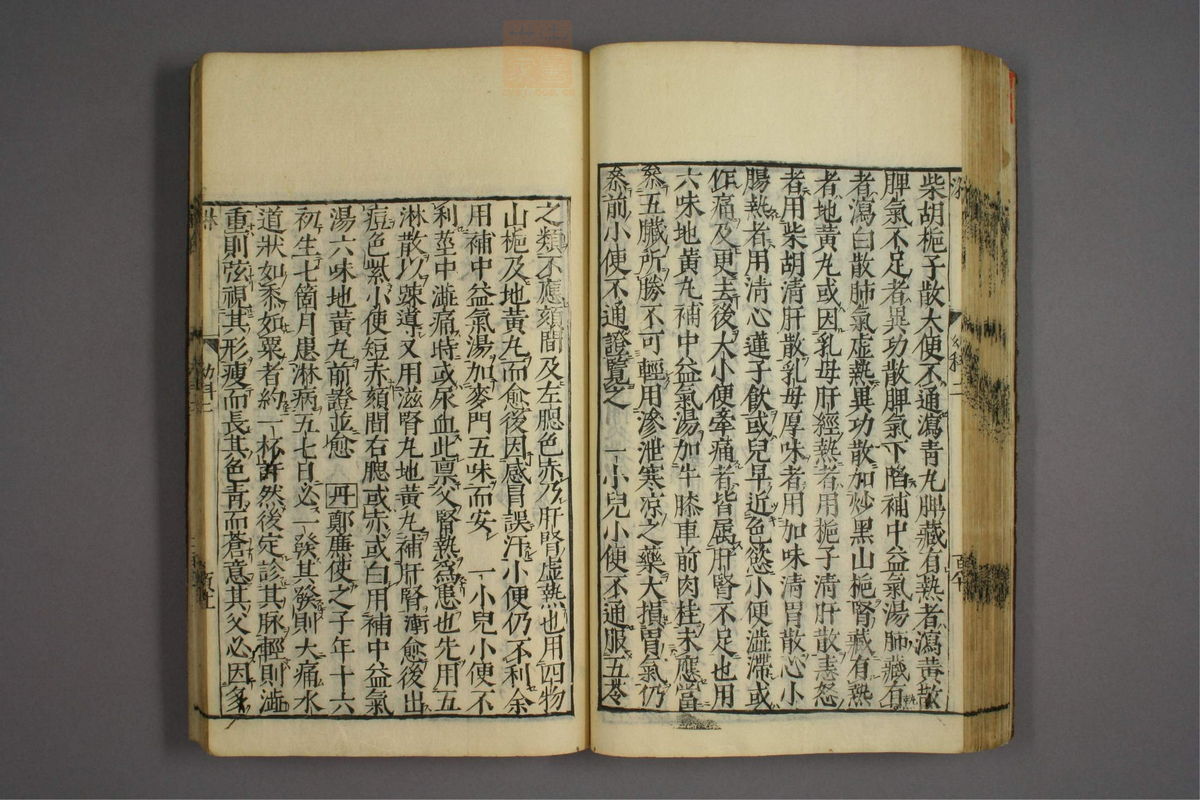 柴胡梔子散大便不通瀉青丸脾藏有熱者瀉黄散
脾氣不足者異功散脾氣下陷補中益氣湯肺藏有
者瀉白散肺氣虛熱異功散加炒黑山梔腎藏有熱
者地黄丸或因乳母肝經熱者用梔子清肝散恚怒
者用柴胡清肝散乳母厚味者用加味清胃散心小
腸熱者用清心蓮子飲或兒早近色慾小便澁滯或
作痛及更去後大小便牽痛者皆属肝腎不足也用
六味地黄丸補中益氣湯加牛膝車前肉桂未應當
叅五臓所勝不可輕用滲泄寒凉之藥大損胃氣仍
叅前小便不通證覧之 一小兒小便不通服五苓
之類不應頦間及左腮色赤乃肝腎虛熱也用四物
山梔及地黄丸而愈後因感冒誤汗小便仍不利余
用補中益氣湯加麥門五味而安 一小兒小便不
利莖中澁痛時或尿血此禀父腎熱爲患也先用五
淋散以踈導又用滋腎丸地黄丸補肝腎漸愈後出
痘色紫小便短赤頦間右腮或赤或白用補中益氣
湯六味地黄丸前證並愈 丹鄭廉使之子年十六
初生七箇月患淋病五七日必一發其發則大痛水
道狀如黍如粟者約一杯許然後定診其脉輕則澁
重則弦視其形瘦而長其色青而蒼意其父必因多